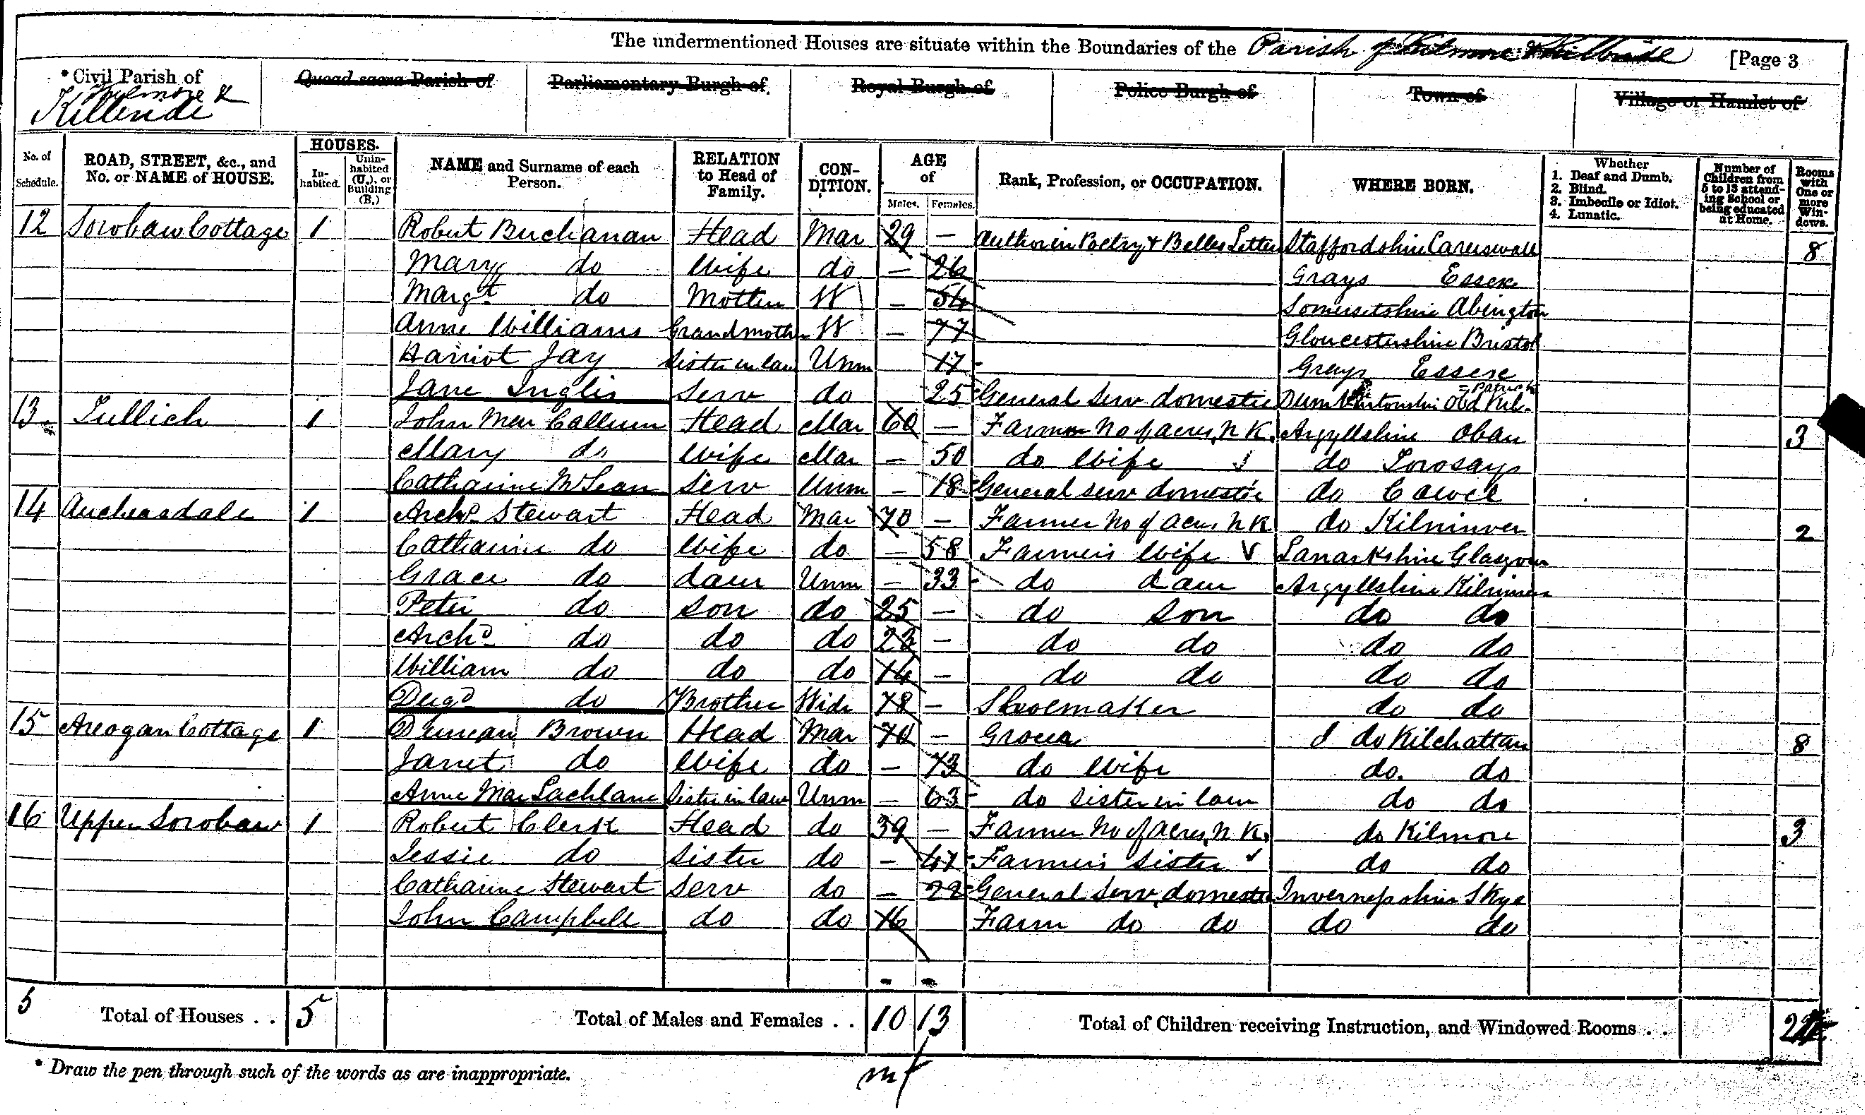 The undermentioned Houses are situate within the Boundaries of the Parish of Kilmore & Kilbride [Page 3
* Civil Parish of Kilmore & Kilbride Quoad sacra Parish of Parliamentary Burgh of Royal Burgh of Police Burgh of Town of Village or Hamlet of
No. of Schedule. ROAD, STREET, &c., and No. or NAME of HOUSE. HOUSES. Inhabited. Uninhabited (U.), or Building (B.) NAME and Surname of each Person. RELATION to Head of Family. CONDITION. AGE of Males. Females. Rank, Profession, or OCCUPATION. WHERE BORN. Whether 1. Deaf and Dumb. 2. Blind. 3. Imbecile or Idiot. 4. Lunatic. Number of Children from 5 to 13 attending School or being educated at Home. Rooms with One or more Windows.
12 Sorobaw Cottage 1 Robert Buchanan Head Mar 29 – Author in Poetry & Belles Letters Staffordshire Caverswall 8
Mary do Wife do – 26 Grays Essex
Margt do Mother W – 54 Somersetshire Abington
Anne Williams Grandmother W – 77 Gloucestershire Bristol
Harriot Jay Sister in law Unm – 17 Grays Essex
Jane Inglis Serv do 25 General Serv domestic Dumbartonshire Old Kilpatrick
13 Tullich 1 John Mac Callum Head Mar 60 – Farmer No of acres N K. Argyllshire Oban 3
Mary do Wife Mar – 50 do Wife do Torosay
Catharine McLean Serv Unm – 18 General serv domestic do Cowel
14 Auchnasdale 1 Archd Stewart Head Mar 70 – Farmer No of acres N K do Kilninver 2
Catharine do Wife do – 58 Farmer's Wife Lanarkshire Glasgow
Grace do daur Unm – 33 do daur Argyllshire Kilninver
Peter do son do 25 – do son do do
Archd do do do 23 – do do do do
William do do do 14 – do do do do
Dugd do Brother Widr 78 – Shoemaker do do
15 Areogan Cottage 1 Duncan Brown Head Mar 70 – Grocer do Kilchattan 8
Janet do Wife do – 73 do Wife do. do
Anne Mac Lachlane Sister in law Unm – 63 do Sister in law do do
16 Upper Sorobaw 1 Robert Clerk Head do 39 – Farmer No of acres N K. do Kilmore 3
Jessie do Sister do – 47 Farmer's Sister do do
Catharine Stewart Serv do – 22 General Serv domestic Invernessshire Skye
John Campbell do do 16 Farm do do do do
5 Total of Houses . . 5 Total of Males and Females . . 10 13 Total of Children receiving Instruction, and Windowed Rooms . .
* Draw the pen through such of the words as are inappropriate.